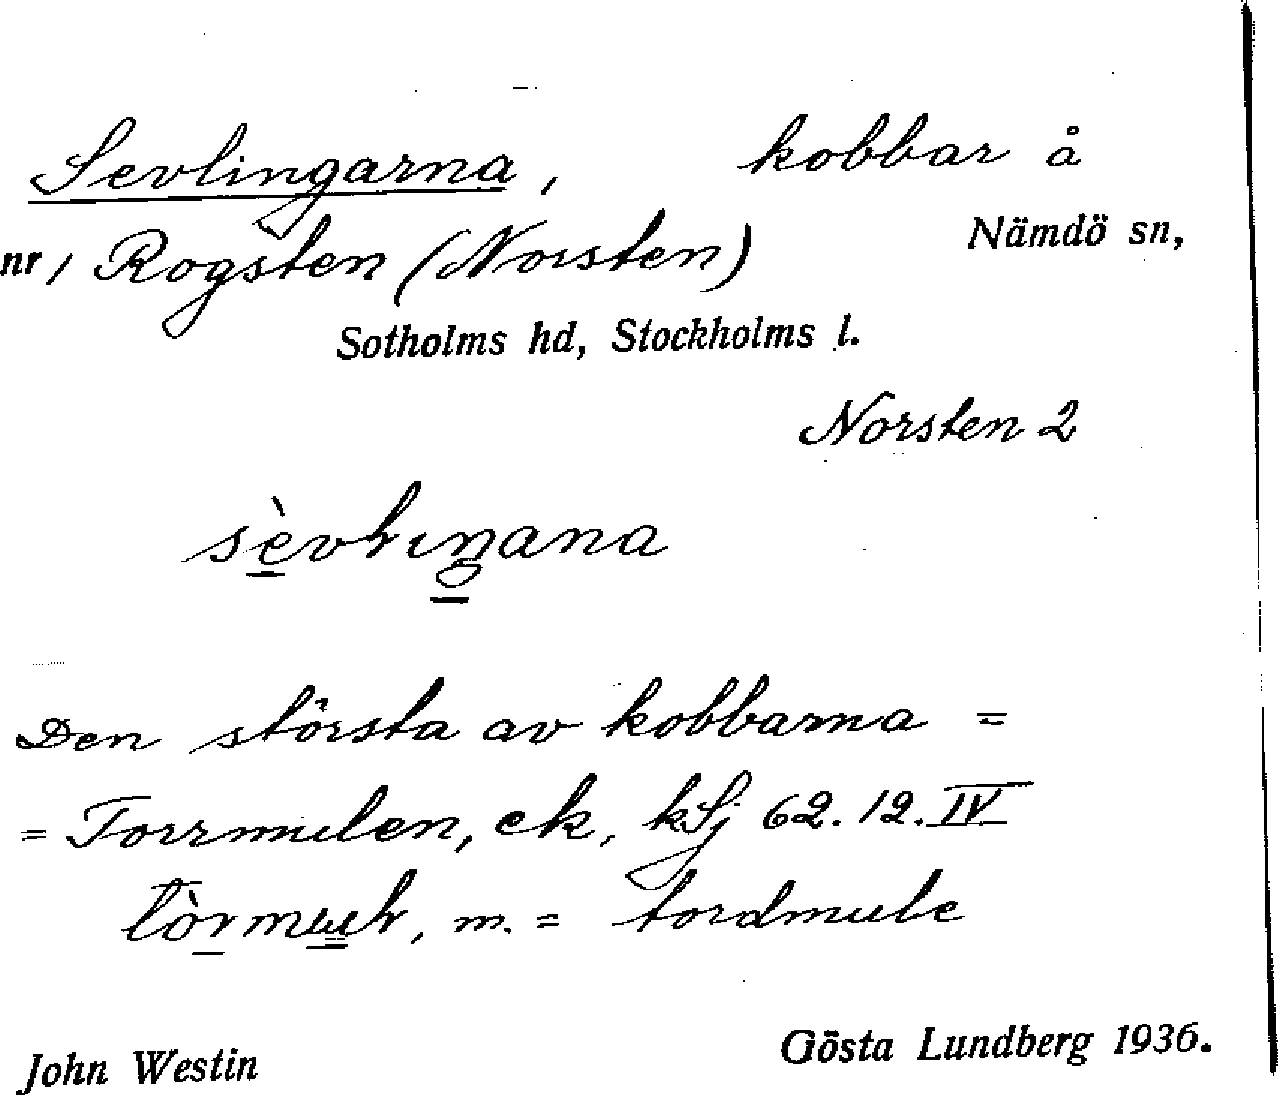 Sevlingarna, kobbar å
Nämdö sn,
nr, Rogsten (Norsten)
Sotholms hd, Stockholms l.
Norsten 2
Den största av kobbarna =
= Torrmulen, ek, kSj 62.12.IV
m. = tordmule
John Westin
Gösta Lundberg 1936.